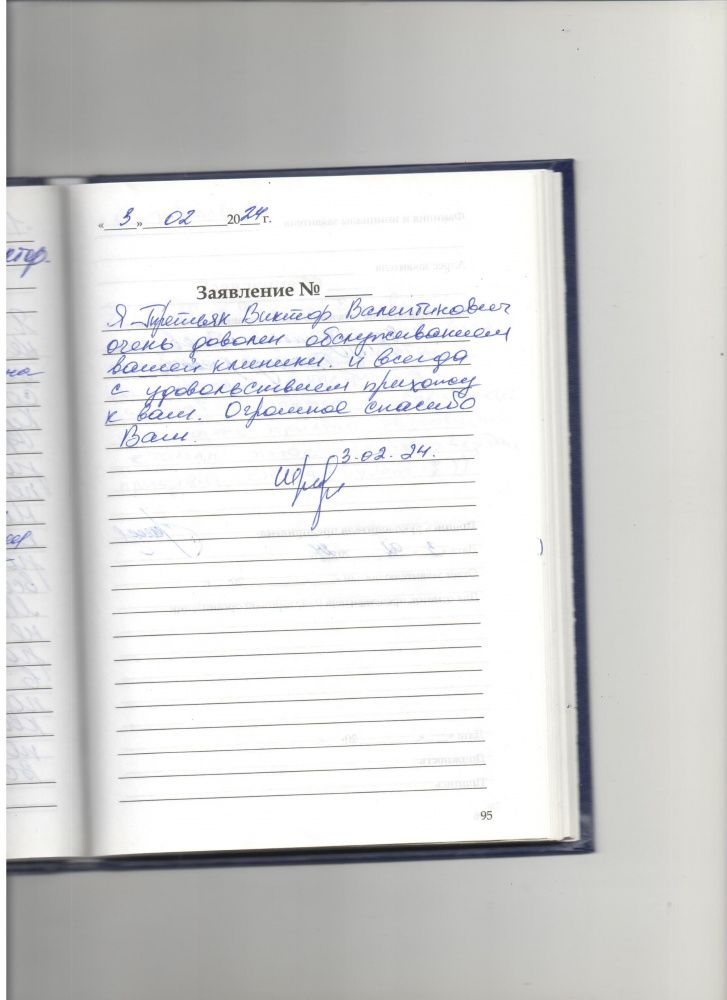 « 3 » 02 2024 г.
Заявление №
Я Третьяк Виктор Валентинович
очень доволен обслуживанием
вашей клиники. И всегда
с удовольствием прихожу
к вам. Огромное спасибо
Вам.
3.02.24.
95